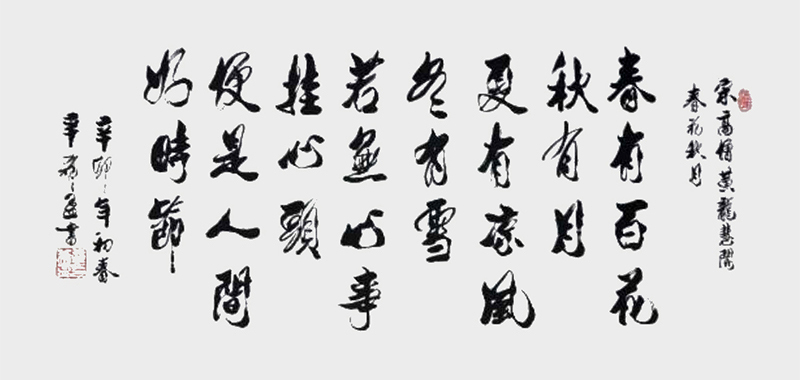 宋高僧黄龍慧開
春花秋月
春有百花
秋有月
夏有凉風
冬有雪
若無心事
挂心頭
便是人間
好時節
辛卯年初春
書